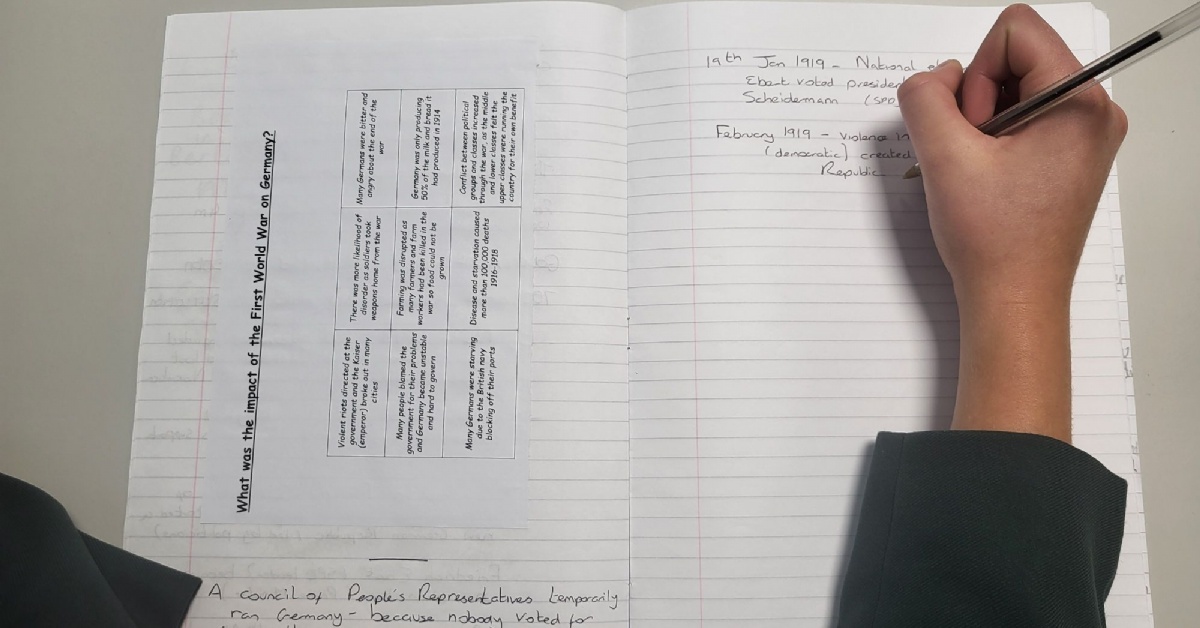 What was the impact of the First World War on Germany?
Violent riots directed at the
government and the Kaiser
(emperor) broke out in many
cities
There was more likelihood of
disorder as soldiers took
weapons home from the war
Many Germans were bitter and
angry about the end of the
war
Many people blamed the
government for their problems
and Germany became unstable
and hard to govern
Farming was disrupted as
many farmers and farm
workers had been killed in the
war so food could not be
grown
Germany was only producing
50% of the milk and bread it
had produced in 1914
Many Germans were starving
due to the British navy
blocking off their ports
Disease and starvation caused
more than 100,000 deaths
1916-1918
Conflict between political
groups and classes increased
through the war, as the middle
and lower classes felt the
upper classes were running the
country for their own benefit
A council of People's Representatives temporarily
ran Germany - because nobody voted for
19th Jan 1919 - National
Ebert voted president
Scheidemann (SPD
February 1919 - Violence in
(democratic) created
Republic